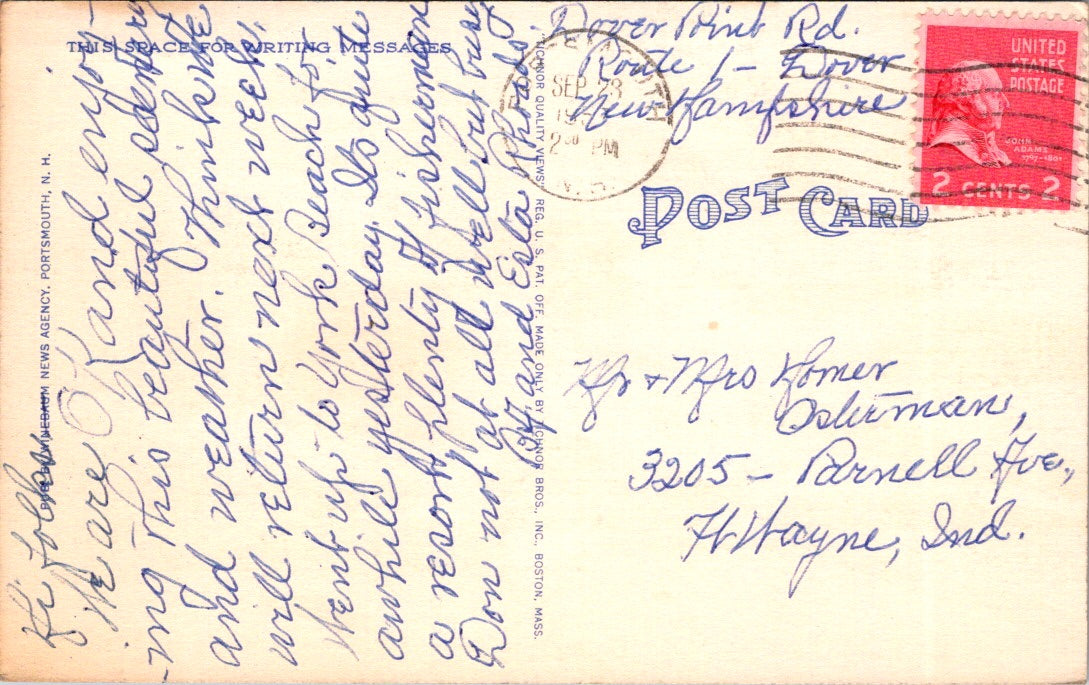 THIS SPACE FOR WRITING MESSAGES
Hi folks
We are O.K and enjoy-
-ing this beautiful scenery
and weather. Think we
will return next week.
Went up to York Beach for
awhile yesterday. Its quite
a resort, plenty of fishermen
Don not at all well but busy
and Esta Rhoads.
NEWS AGENCY, PORTSMOUTH, N. H.
TICHNOR QUALITY VIEWS. REG. U. S. PAT. OFF. MADE ONLY BY TICHNOR BROS., INC., BOSTON, MASS.
Dover Point Rd.
Route 1 - Dover
New Hampshire
SEP 23
2 PM
UNITED
STATES
POSTAGE
JOHN
ADAMS
1797-1801
2 CENTS 2
POST CARD
Mr + Mrs Homer
Osterman,
3205 - Parnell Ave.,
Ft Wayne, Ind.